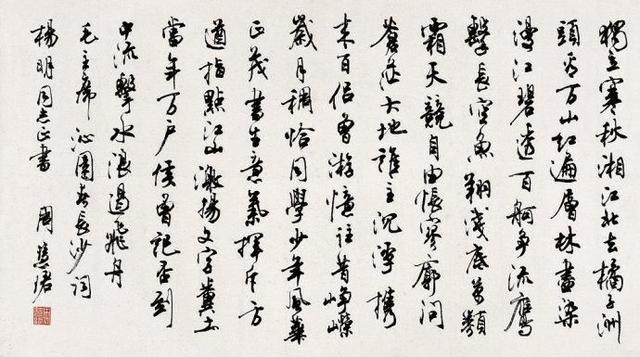 獨立寒秋湘江北去橘子洲
頭看万山紅遍層林盡染
漫江碧透百舸爭流鷹
擊長空魚翔淺底萬類
霜天競自由悵寥廓問
蒼茫大地誰主沉浮携
来百侣曾游憶往昔崢嶸
歲月稠恰同學少年風華
正茂書生意氣揮斥方
遒指點江山激揚文字糞土
當年万户侯曾記否到
中流擊水浪遏飛舟
毛主席沁園春長沙詞
楊明同志正書 周慧珺